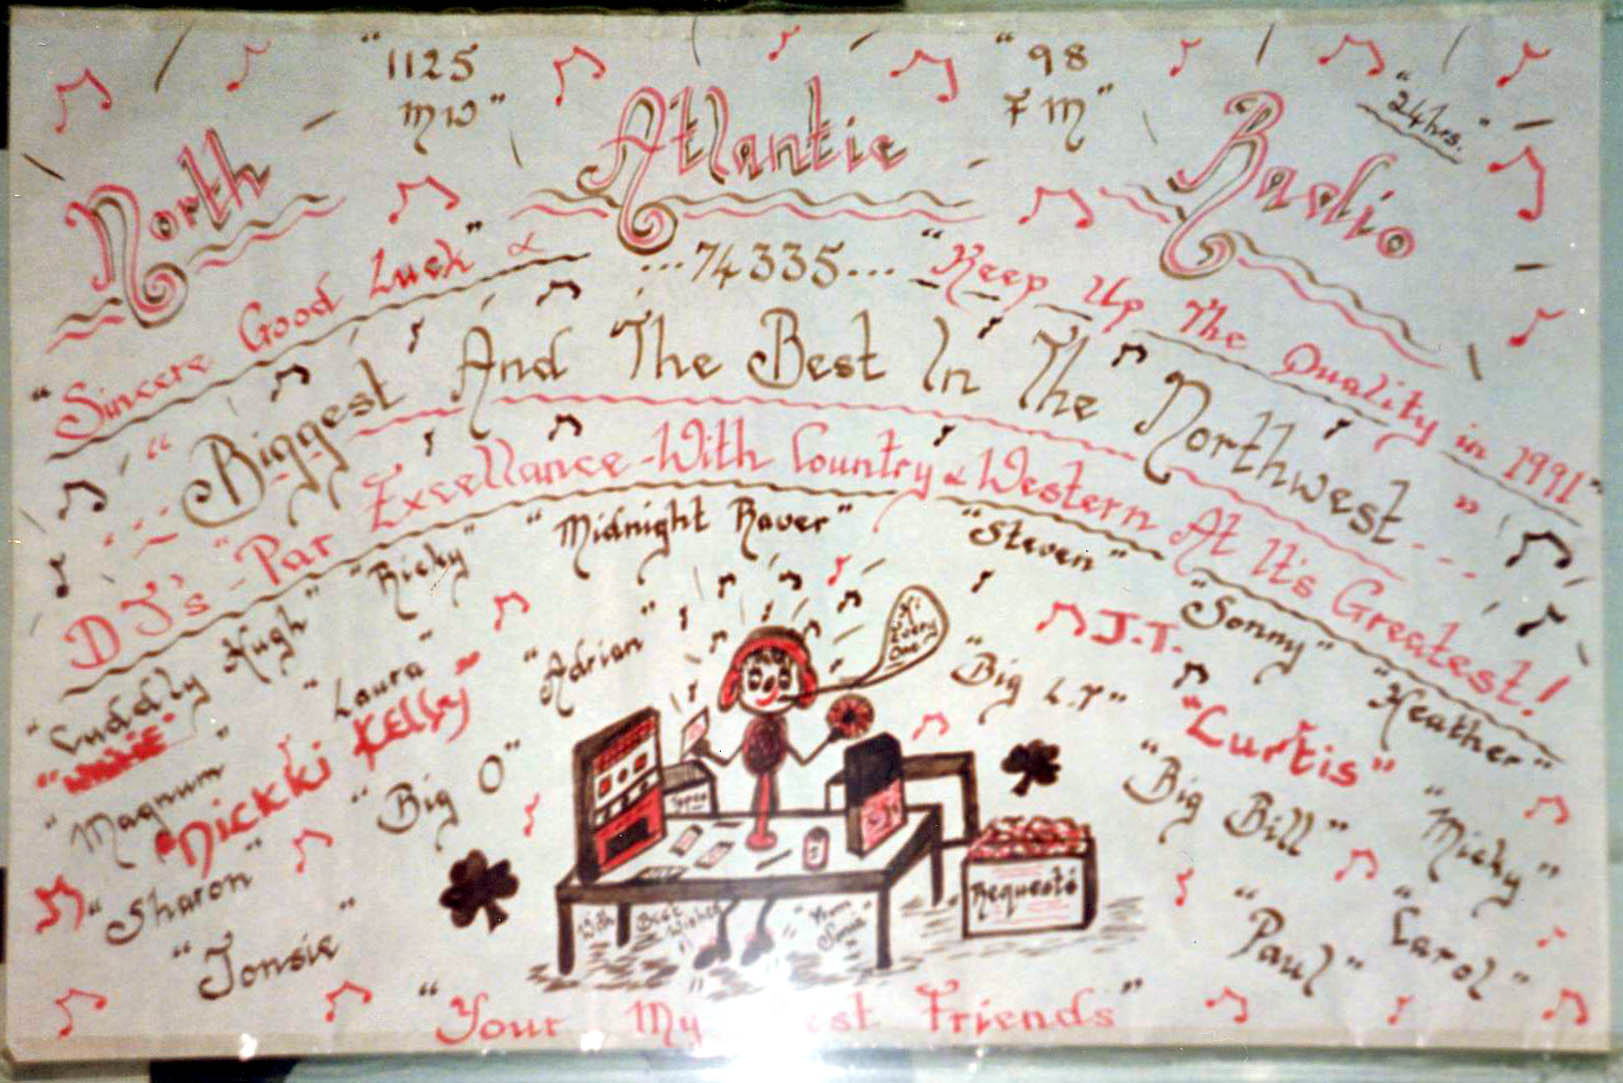 "1125
MW"
"98
FM"
"24hrs."
North Atlantic Radio
"Sincere Good Luck" & ...74335... "Keep Up The Quality in 1991"
"Biggest And The Best In The Northwest"
DJ's - "Par Excellance - With Country & Western At It's Greatest!
"Cuddly Hugh" "Ricky" "Midnight Raver" "Steven" "Sonny" "Heather"
"Magnum" "Laura" "Adrian" "Big L.T" J.T.
Nickki Kelly "Big O" "Curtis"
"Sharon" "Big Bill" "Micky"
"Tonsie" "Paul" "Carol"
Hi
Every
One
Tapes
Requests
With Best Wishes
From
"Your My est Friends"